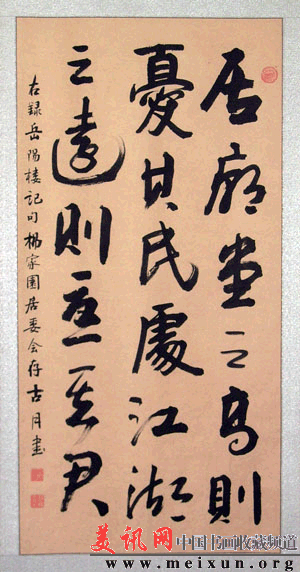 居廟堂之高則
憂其民處江湖
之遠則憂其君
右録岳陽楼记句楊家園居委会存古月書
美讯网 中国书画收藏频道
www.meixun.org